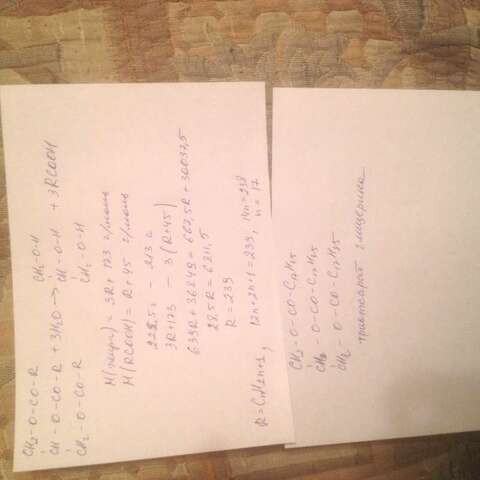 CH₂-O-CO-R CH₂-O-H
CH-O-CO-R + 3H₂O → CH-O-H + 3RCOOH
CH₂-O-CO-R CH₂-O-H
M(жира) = 3R + 173 г/моль
M(RCOOH) = R + 45 г/моль
222,5 г – 213 г
3R+173 – 3(R+45)
639R + 36849 = 667,5R + 30037,5
28,5R = 6811,5
R = 239
R = CnH2n+1, 12n+2n+1 = 239, 14n = 238
n = 17
CH₂-O-CO-C₁₇H₃₅
CH-O-CO-C₁₇H₃₅
CH₂-O-CO-C₁₇H₃₅
тристеарат глицерина